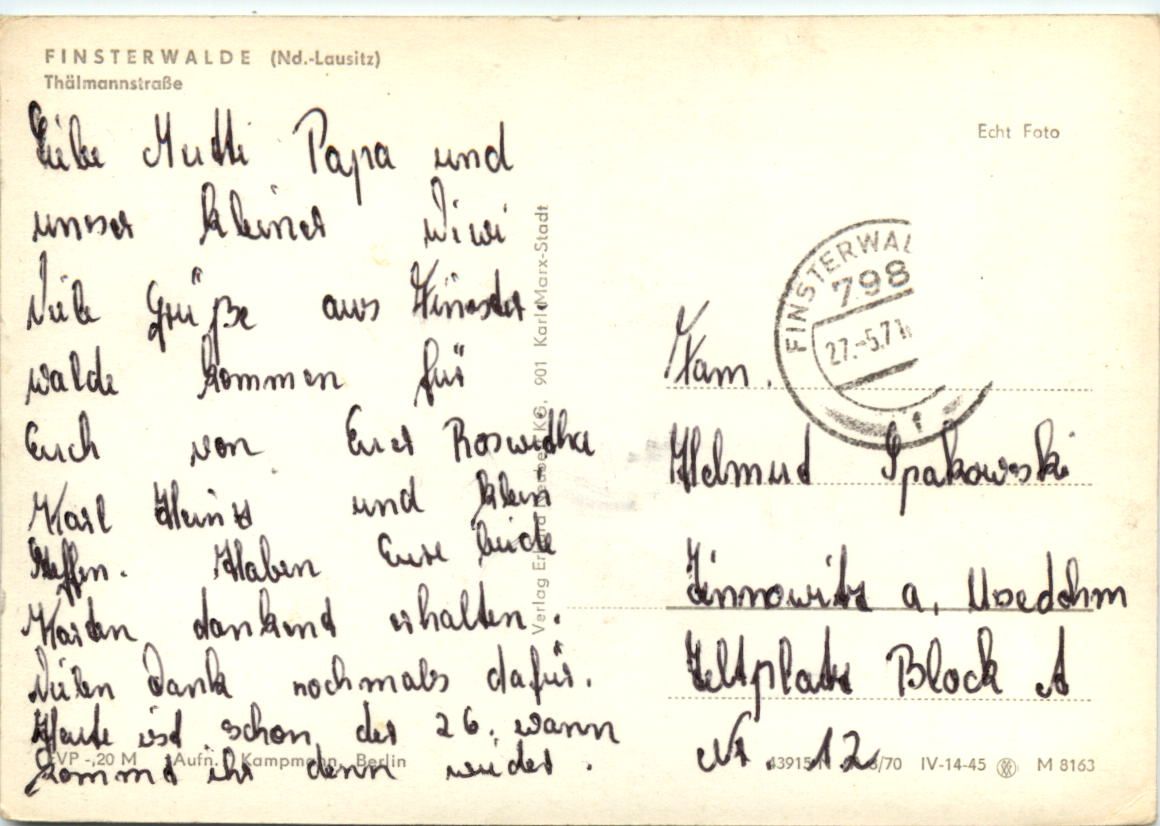 FINSTERWALDE (Nd.-Lausitz)
Thälmannstraße
Liebe Mutti Papa und
unser kleiner Wiwi
Viele Grüße aus Finster-
walde kommen für
Euch von Eurer Roswitha
Karl Heinz und klein
Steffen. Haben Eure beide
Karten dankend erhalten.
Vielen Dank nochmals dafür.
Heute ist schon der 26. wann
kommt ihr denn wieder.
EVP -,20 M Aufn.: Kampmann, Berlin
Verlag KG, 901 Karl-Marx-Stadt
Echt Foto
FINSTERWAL
798
27.-5.71
Fam.
Helmud Spakowski
Zinnowitz a. Usedohm
Zeltplatz Block A
Nr. 12
43915 8/70 IV-14-45 M 8163